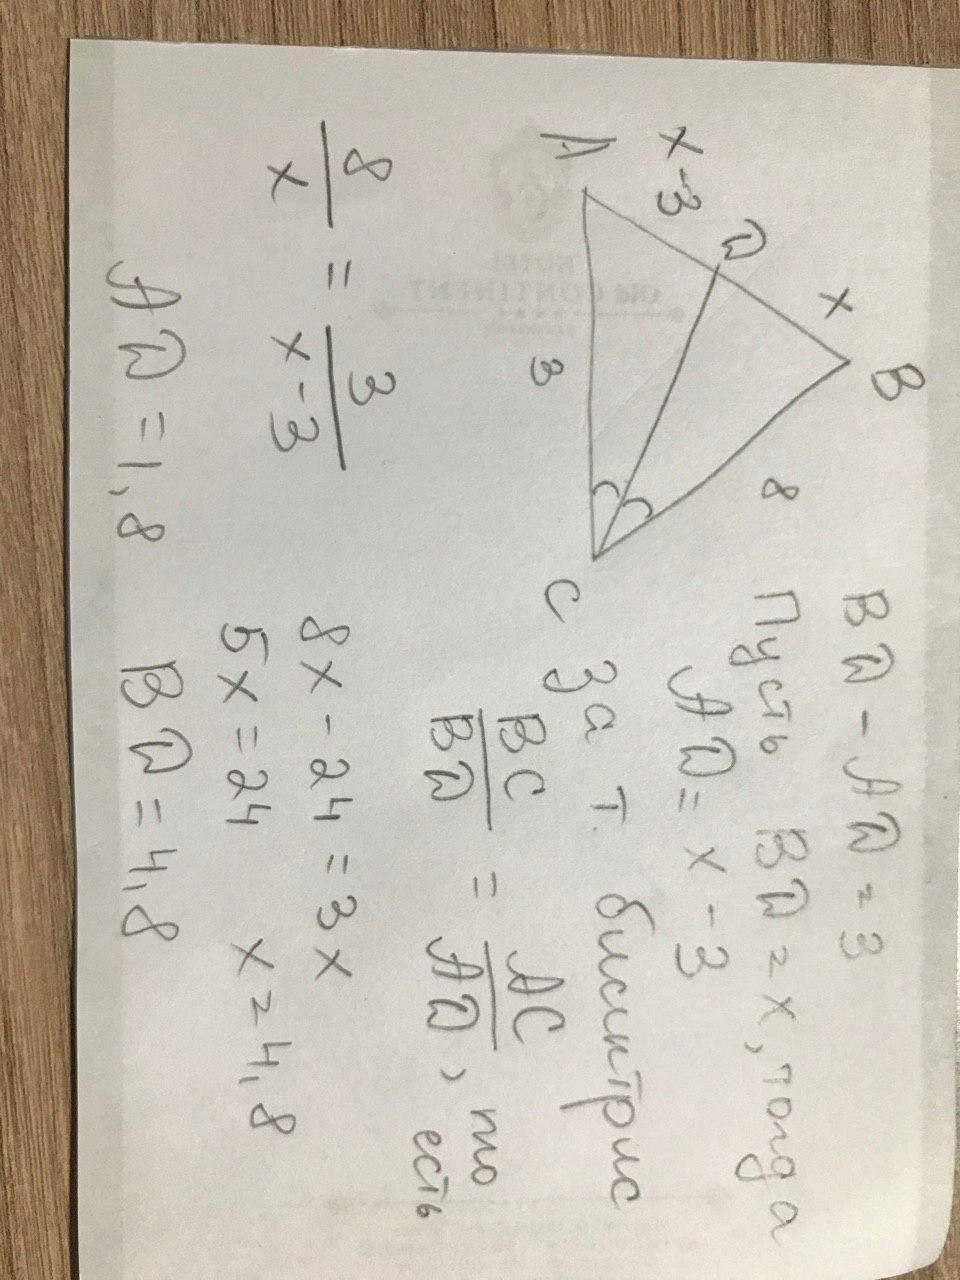 BD - AD = 3
Пусть BD = x, тогда
AD = x - 3
За т. биссиктрис
BC/BD = AC/AD, то есть
A
x-3
D
x
B
8
3
C
8/x = 3/(x-3)
8x - 24 = 3x
5x = 24 x = 4,8
AD = 1,8 BD = 4,8